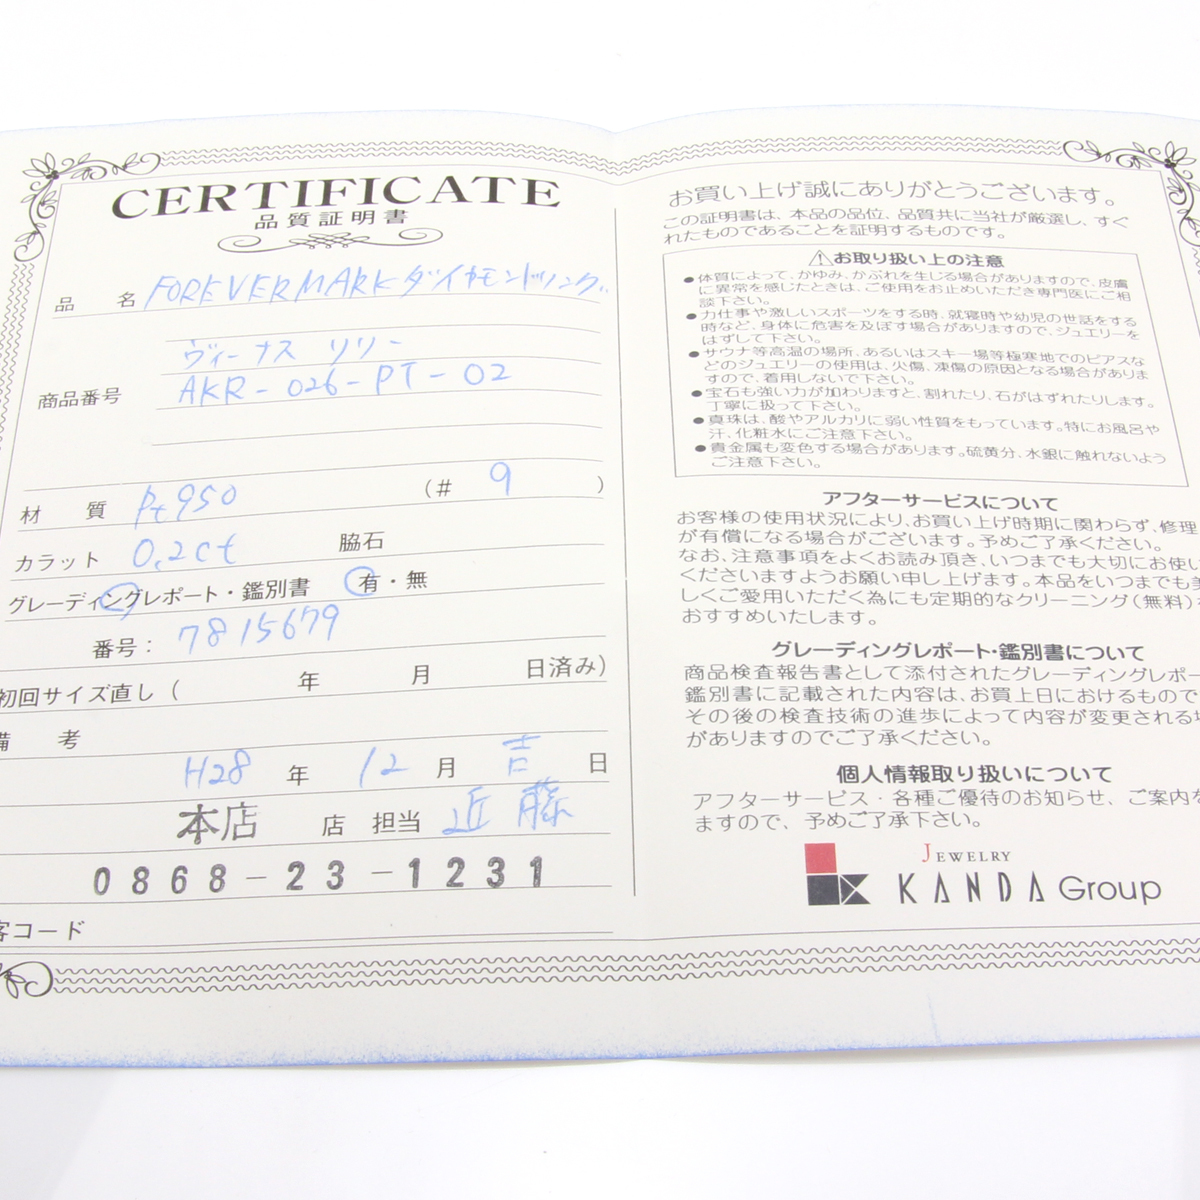 CERTIFICATE
品質証明書
品 名 FOREVERMARKダイヤモンドリング
ヴィーナス リリー
商品番号 AKR-026-PT-02
材 質 Pt950 (# 9 )
カラット 0.2ct 脇石
グレーディングレポート・鑑別書 有・無
番号: 7815679
初回サイズ直し( 年 月 日済み)
備 考
H28 年 12 月 吉 日
本店 店 担当 近藤
0868-23-1231
客コード
お買い上げ誠にありがとうございます。
この証明書は、本品の品位、品質共に当社が厳選し、すぐ
れたものであることを証明するものです。
⚠お取り扱い上の注意
●体質によって、かゆみ、かぶれを生じる場合がありますので、皮膚
に異常を感じたときは、ご使用をお止めいただき専門医にご相
談下さい。
●力仕事や激しいスポーツをする時、就寝時や幼児の世話をする
時など、身体に危害を及ぼす場合がありますので、ジュエリーを
はずして下さい。
●サウナ等高温の場所、あるいはスキー場等極寒地でのピアスな
どのジュエリーの使用は、火傷、凍傷の原因となる場合がありま
すので、着用しないで下さい。
●宝石も強い力が加わりますと、割れたり、石がはずれたりします。
丁寧に扱って下さい。
●真珠は、酸やアルカリに弱い性質をもっています。特にお風呂や
汗、化粧水にご注意下さい。
●貴金属も変色する場合があります。硫黄分、水銀に触れないよう
ご注意下さい。
アフターサービスについて
お客様の使用状況により、お買い上げ時期に関わらず、修理
が有償になる場合がございます。予めご了承ください。
なお、注意事項をよくお読み頂き、いつまでも大切にお使い
くださいますようお願い申し上げます。本品をいつまでも美
しくご愛用いただく為にも定期的なクリーニング(無料)を
おすすめいたします。
グレーディングレポート・鑑別書について
商品検査報告書として添付されたグレーディングレポー
鑑別書に記載された内容は、お買上日におけるもので
その後の検査技術の進歩によって内容が変更される場
がありますのでご了承ください。
個人情報取り扱いについて
アフターサービス・各種ご優待のお知らせ、ご案内を
ますので、予めご了承下さい。
JEWELRY
KANDA Group